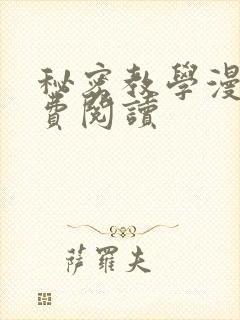 秘密教學漫
費閱讀
萨羅夫